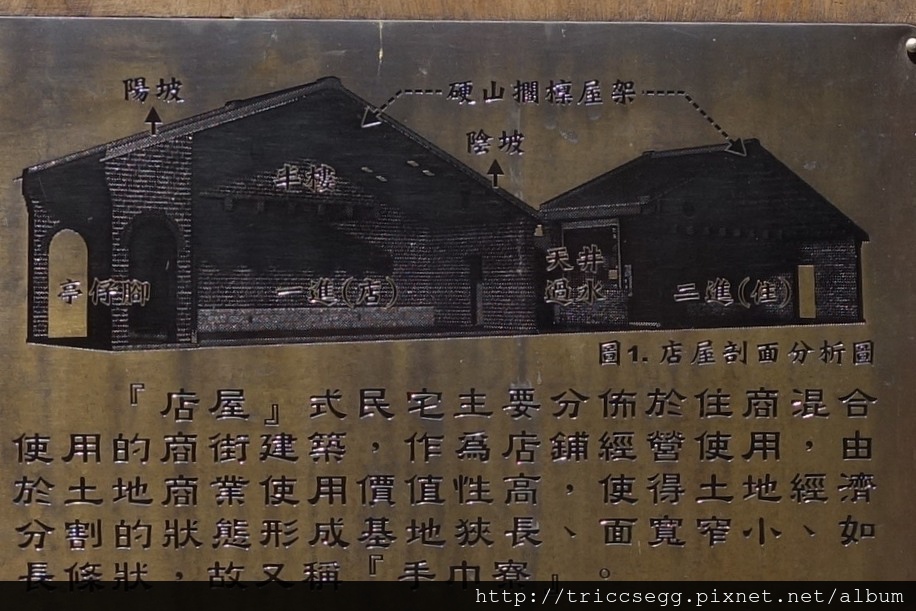 陽坡
硬山擱檁屋架
陰坡
半樓
天井
過水
亭仔腳
一進(店)
二進(住)
圖1. 店屋剖面分析圖
『店屋』式民宅主要分佈於住商混合
使用的商街建築，作為店鋪經營使用，由
於土地商業使用價值性高，使得土地經濟
分割的狀態形成基地狹長、面寬窄小、如
長條狀，故又稱『手巾寮』。
http://triccsegg.pixnet.net/album